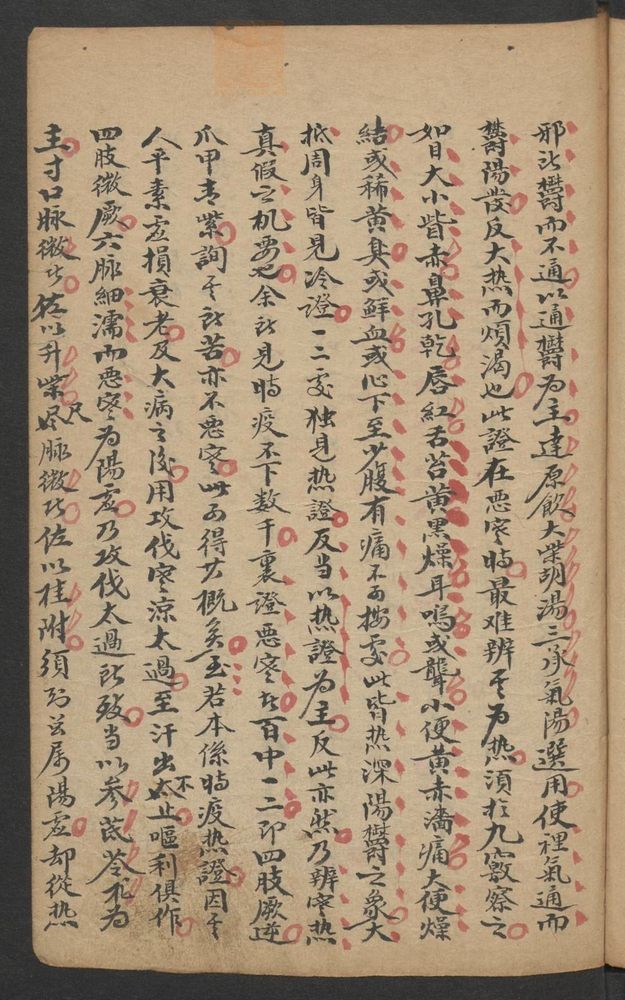 邪所鬱而不通以通鬱为主達原飲大柴胡湯三承氣湯選用使裡氣通而
鬱陽發反大热而煩渴也此證在恶寒時最难辨其为热須於九竅察之
如目大小眥赤鼻孔乾唇紅舌苔黄黒燥耳鳴或聾小便黄赤濇痛大便燥
結或稀黄臭或鮮血或心下至少腹有痛不可按处此皆热深陽鬱之象大
抵周身皆見冷證一二处独見热證反当以热證为主反此亦然乃辨寒热
真假之机要也余所見時疫不下数千裏證恶寒者百中一二即四肢厥逆
爪甲青紫詢其所苦亦不恶寒此可得大概矣至若本係時疫热證因其
人平素虚損衰老及大病之後用攻伐寒凉太過至汗出不止嘔利俱作
四肢微厥六脉細濡而恶寒为陽虚乃攻伐太過所致当以参芪苓朮为
主寸口脉微者佐以升柴尺脉微者佐以桂附須知茲属陽虚却從热